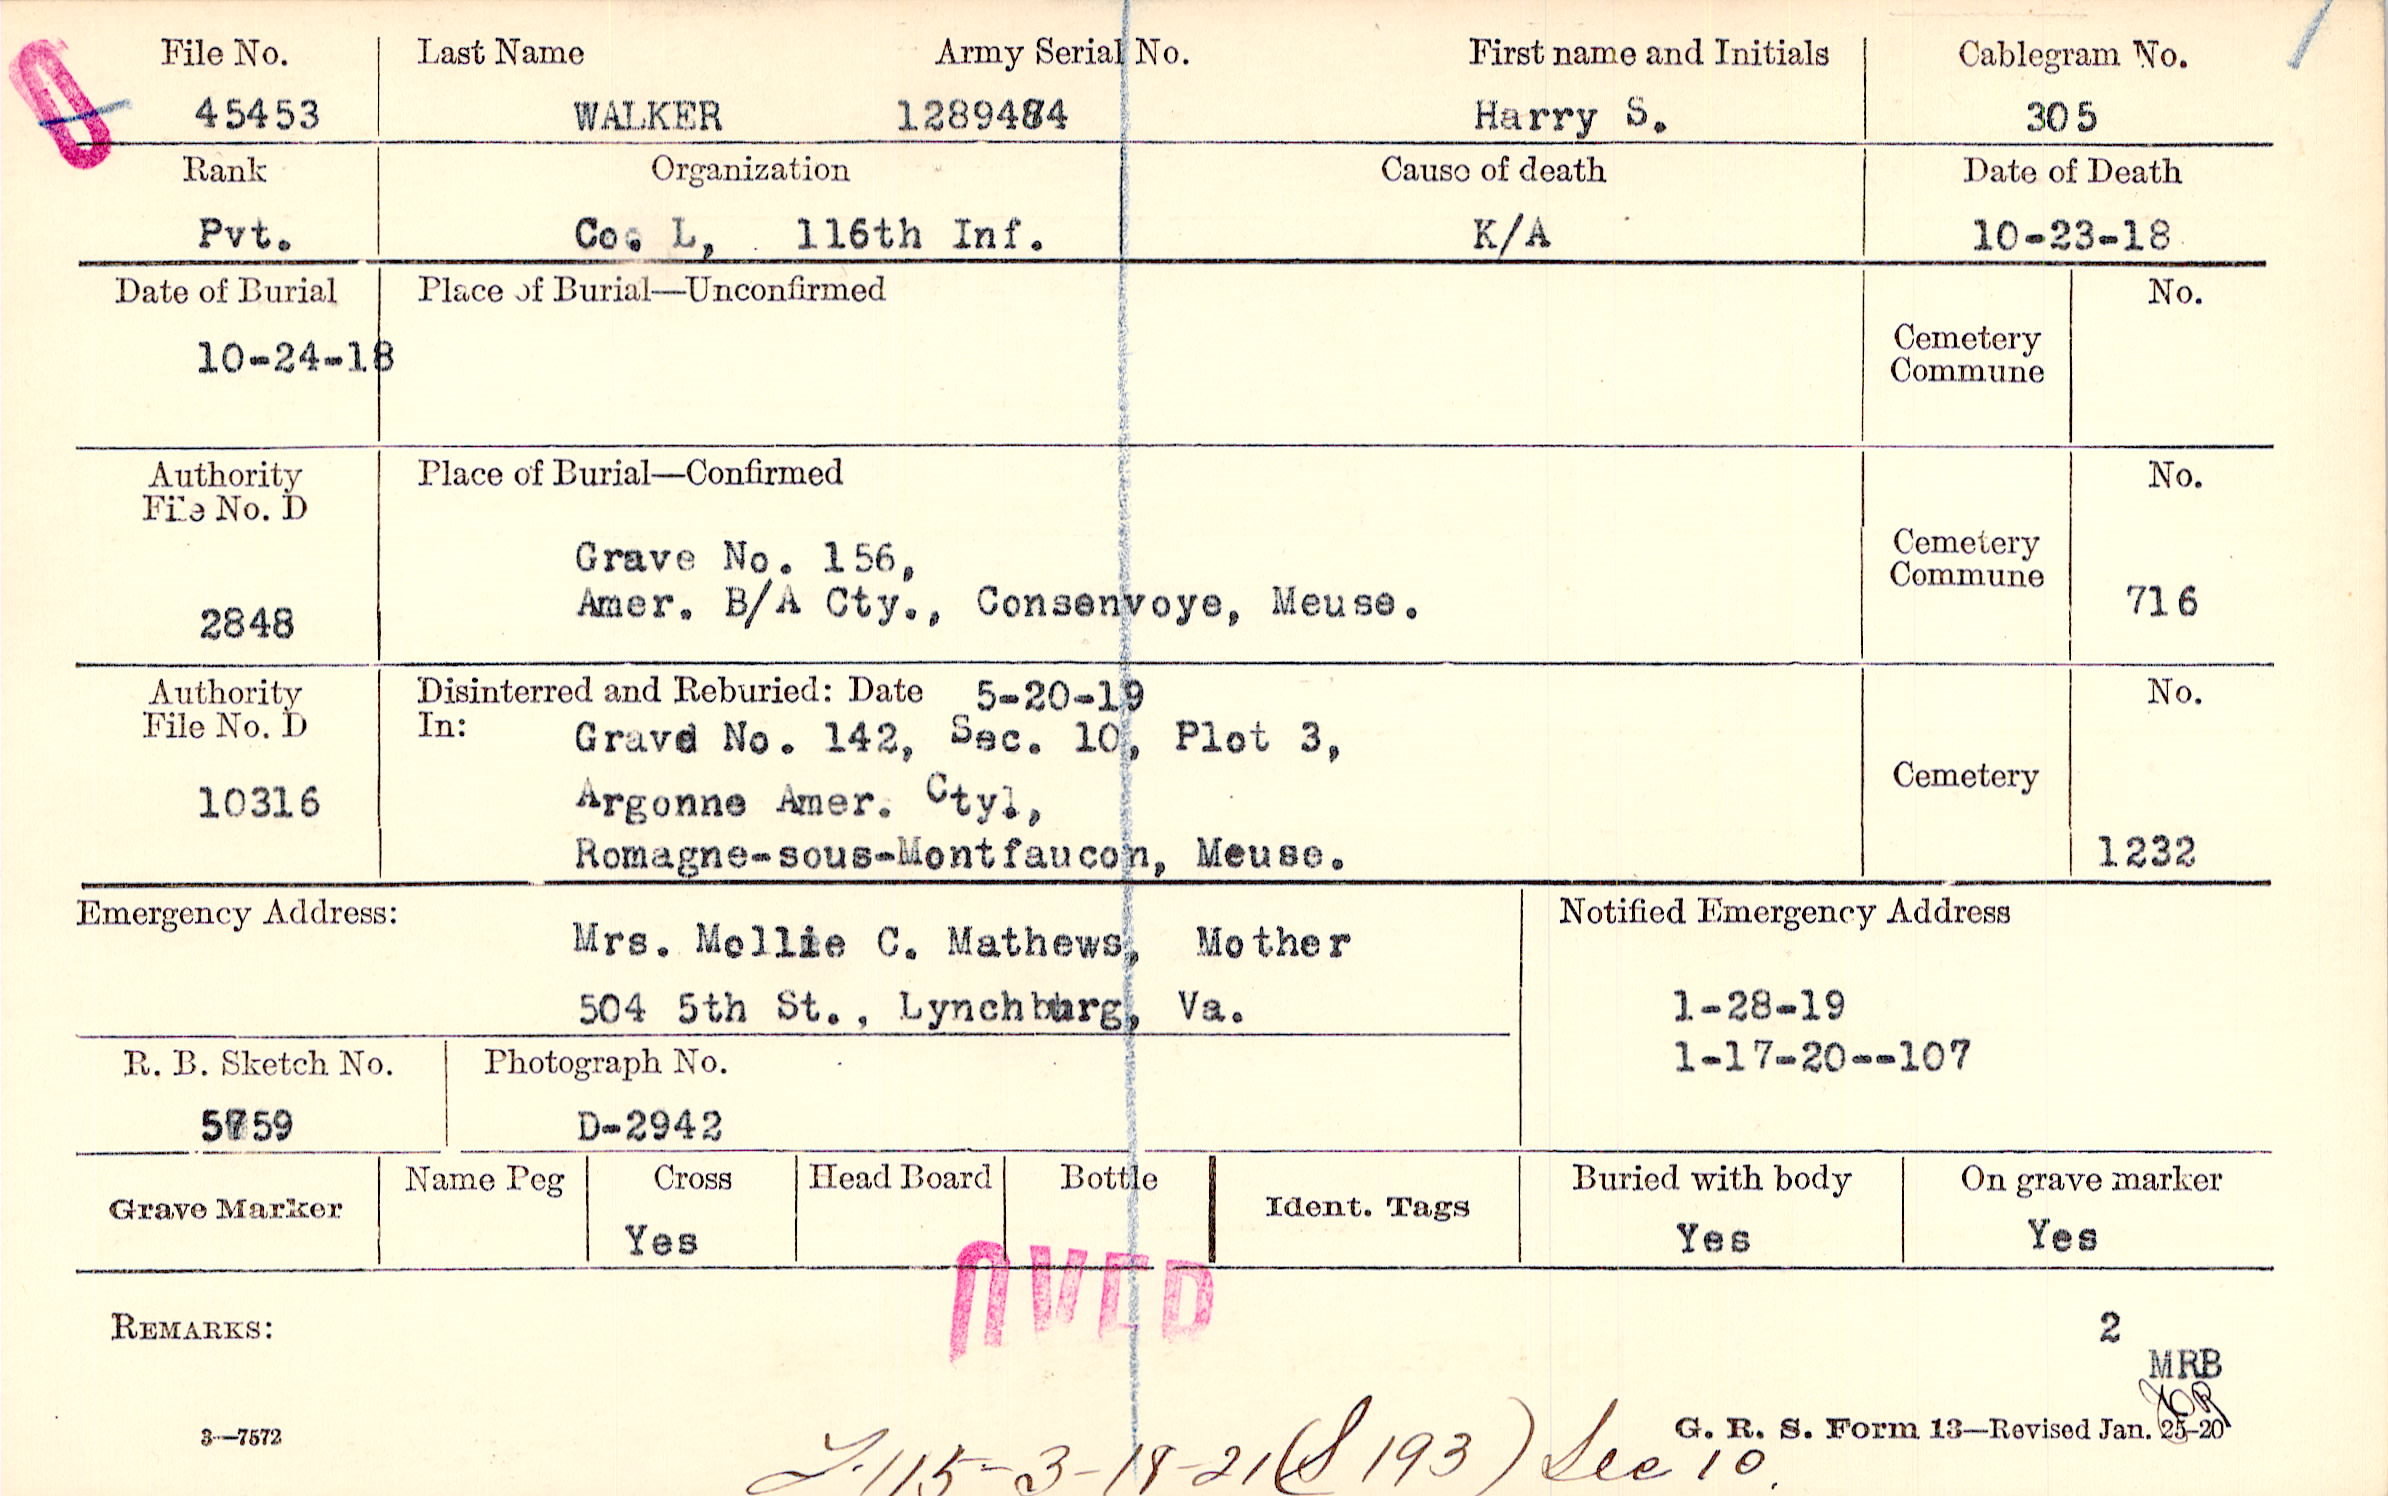 File No. Last Name Army Serial No. First name and Initials Cablegram No.
45453 WALKER 1289484 Harry S. 305
Rank Organization Cause of death Date of Death
Pvt. Co. L, 116th Inf. K/A 10-23-18
Date of Burial Place of Burial—Unconfirmed No.
10-24-18
Cemetery
Commune
Authority Place of Burial—Confirmed No.
File No. D
Grave No. 156,
Cemetery
Commune
Amer. B/A Cty., Consenvoye, Meuse. 716
2848
Authority Disinterred and Reburied: Date 5-20-19 No.
File No. D In: Grave No. 142, Sec. 10, Plot 3,
Cemetery
10316 Argonne Amer. Ctyl,
Romagne-sous-Montfaucon, Meuse. 1232
Emergency Address: Notified Emergency Address
Mrs. Mollie C. Mathews, Mother
504 5th St., Lynchburg, Va. 1-28-19
1-17-20--107
R. B. Sketch No. Photograph No.
5759 D-2942
Grave Marker Name Peg Cross Head Board Bottle Ident. Tags Buried with body On grave marker
Yes Yes Yes
REMARKS: 2
MRB
3—7572 G. R. S. Form 13—Revised Jan. 25-20
115-3-18-21 (S 193) Sec 10.